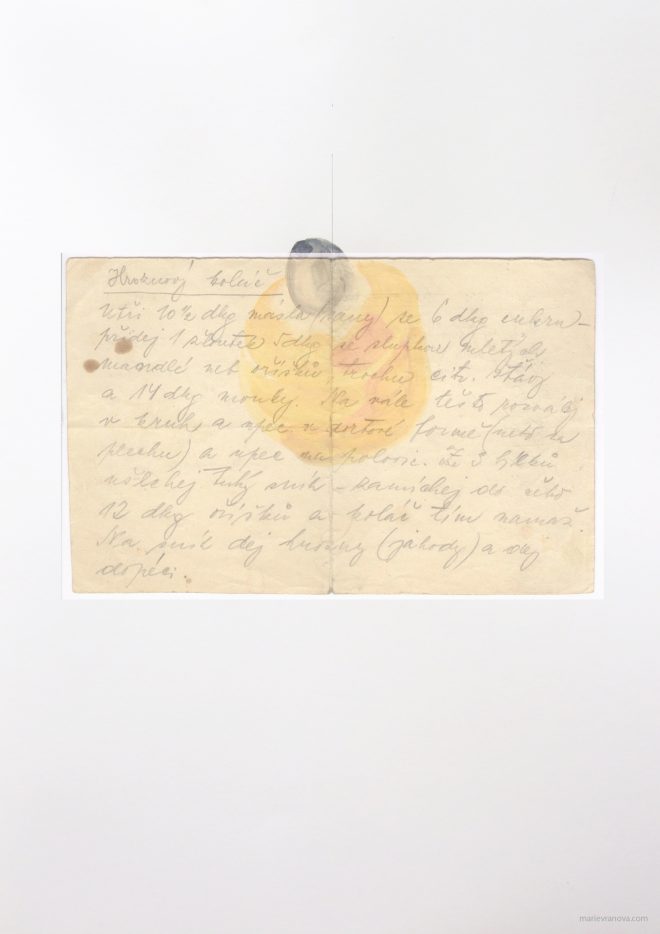 Hroznový koláč
Utři 10½ dkg másla (Hany) se 6 dkg cukru –
přidej 1 žloutek 5 dkg se slupkou mletých
mandlí neb oříšků, trochu citr. šťávy
a 14 dkg mouky. Na vále těsto rozválej
v kruh, a upec v dortové formě (nebo na
plechu) a upec na polovic. Ze 3 bílků
ušlehej tuhý sníh – zamíchej do něho
12 dkg oříšků a koláč tím namaž.
Na sníh dej hrozny (jahody) a dej
dopéci.
marievranova.com